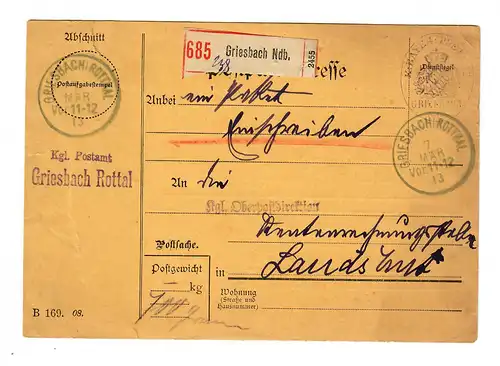 Abschnitt
Postaufgabestempel
GRIESBACH ROTTAL
MÄR
Vor.11-12
13
Kgl. Postamt
Griesbach Rottal
B 169. 08.
685 Griesbach Ndb. 2455
238
resse
K. BAYER. POST
Dienstsiegel
Anbei ein Paket
Einschreiben
GRIESBACH ROTTAL
7
MÄR
Vor.11-12
13
An die
Kgl. Oberpostdirektion
Rentenrechnungsstelle
Postsache.
Postgewicht
kg
700
in Landshut
Wohnung
(Straße und
Hausnummer)